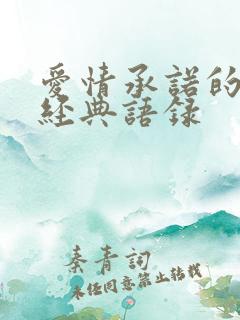 愛情承諾的
經典語錄
秦青詞
未經同意禁止轉載